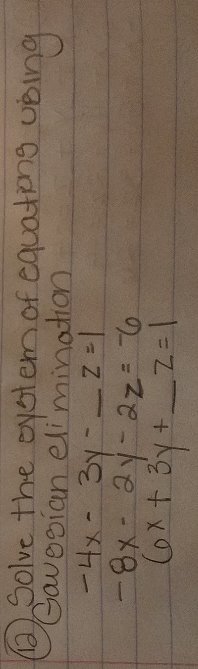 12 Solve the system of equations using
Gaussian elimination
-4x - 3y - _ z = 1
-8x - 2y - 2z = -6
6x + 3y + _ z = 1